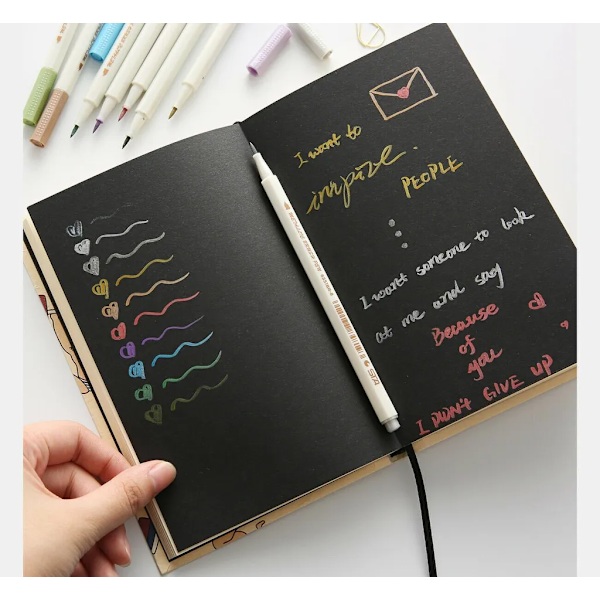 I want to
inspire.
PEOPLE
I want someone to look
at me and say
Because
of
you
I DIDN'T GIVE UP